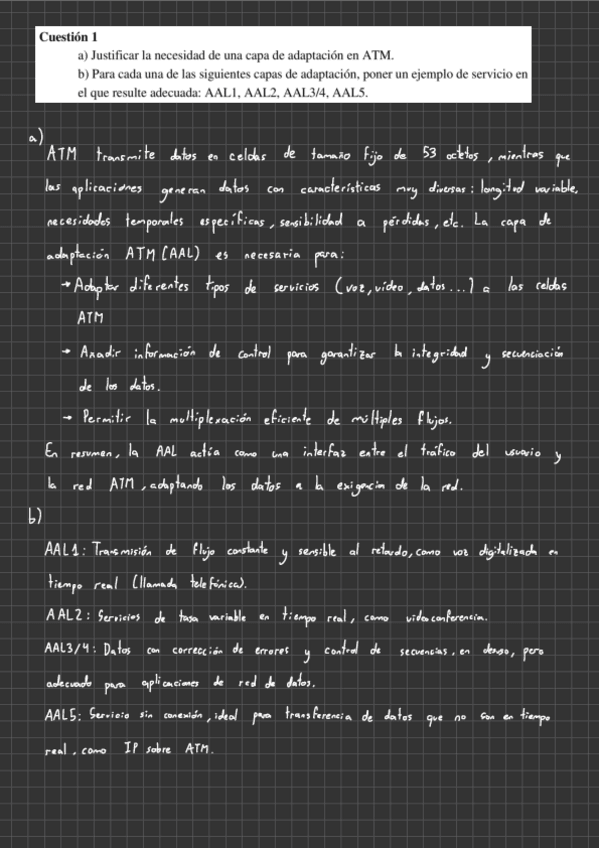 Cuestión 1
a) Justificar la necesidad de una capa de adaptación en ATM.
b) Para cada una de las siguientes capas de adaptación, poner un ejemplo de servicio en
el que resulte adecuada: AAL1, AAL2, AAL3/4, AAL5.
a)
ATM transmite datos en celdas de tamaño fijo de 53 octetos, mientras que
las aplicaciones generan datos con características muy diversas: longitud variable,
necesidades temporales específicas, sensibilidad a pérdidas, etc. La capa de
adaptación ATM (AAL) es necesaria para:
→ Adaptar diferentes tipos de servicios (voz, video, datos...) a las celdas
ATM
→ Añadir información de control para garantizar la integridad y secuenciación
de los datos.
→ Permitir la multiplexación eficiente de múltiples flujos.
En resumen, la AAL actúa como una interfaz entre el tráfico del usuario y
la red ATM, adaptando los datos a la exigencia de la red.
b)
AAL1: Transmisión de flujo constante y sensible al retardo, como voz digitalizada en
tiempo real (llamada telefónica).
AAL2: Servicios de tasa variable en tiempo real, como videoconferencia.
AAL3/4: Datos con corrección de errores y control de secuencias. en desuso, pero
adecuado para aplicaciones de red de datos.
AAL5: Servicio sin conexión, ideal para transferencia de datos que no son en tiempo
real, como IP sobre ATM.